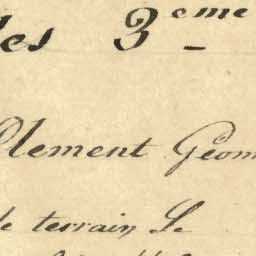 les 3eme
Clement Géom
de terrain Le